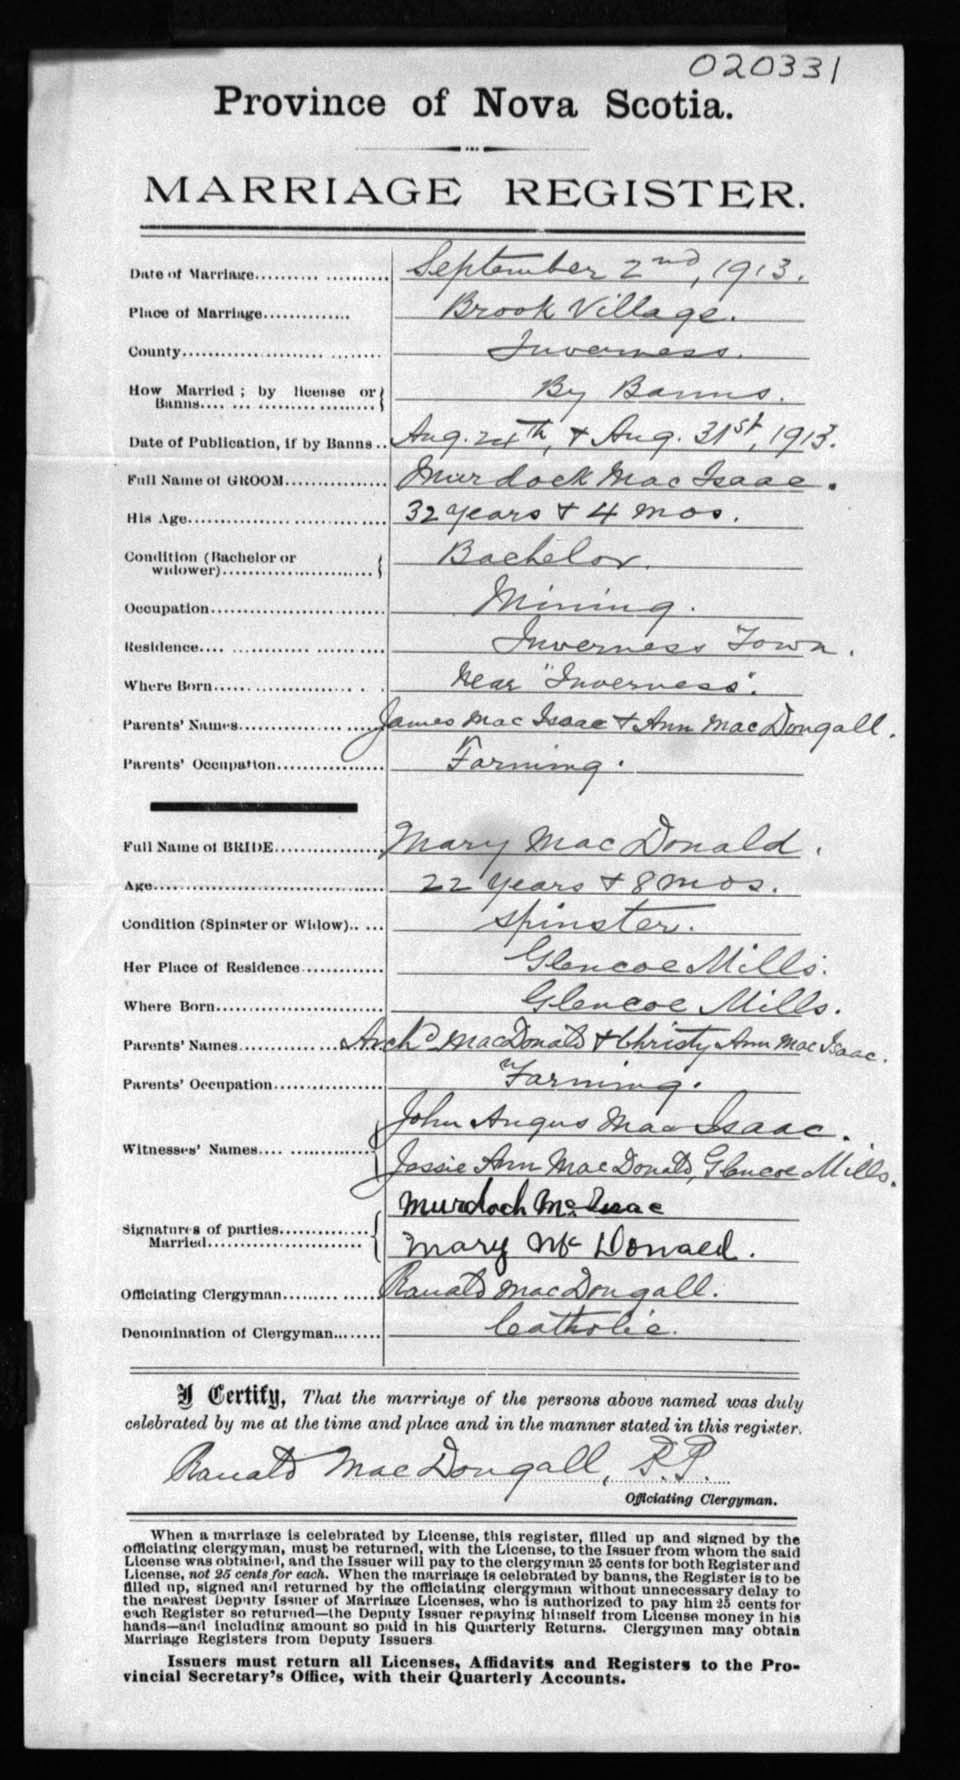 020331
Province of Nova Scotia.
MARRIAGE REGISTER.
Date of Marriage.......... September 2nd, 1913.
Place of Marriage.............. Brook Village.
County........................ Inverness.
How Married ; by license or
Banns.... ... .................... By Banns.
Date of Publication, if by Banns .. Aug. 24th, & Aug. 31st, 1913.
Full Name of GROOM................ Murdock MacIsaac.
His Age................................ 32 years & 4 mos.
Condition (Bachelor or
widower)........................ Bachelor.
Occupation........................ Mining.
Residence.... ............. .......... Inverness Town.
Where Born.................... Near "Inverness".
Parents' Names.................... James MacIsaac & Ann MacDougall.
Parents' Occupation................. Farming.
Full Name of BRIDE................. Mary MacDonald.
Age.................................... 22 years & 8 mos.
Condition (Spinster or Widow).. ... spinster.
Her Place of Residence............. Glencoe Mills.
Where Born......................... Glencoe Mills.
Parents' Names................ Archd. MacDonald & Christy Ann MacIsaac.
Parents' Occupation................. Farming.
John Angus MacIsaac.
Witnesses' Names.... ..............
Jessie Ann MacDonald, Glencoe Mills.
Murdoch McIsaac
Signatures of parties..............
Married........................
Mary McDonald.
Officiating Clergyman.............. Ranald MacDougall.
Denomination of Clergyman........ Catholic.
I Certify, That the marriage of the persons above named was duly
celebrated by me at the time and place and in the manner stated in this register.
Ranald MacDougall, P.P.
Officiating Clergyman.
When a marriage is celebrated by License, this register, filled up and signed by the
officiating clergyman, must be returned, with the License, to the Issuer from whom the said
License was obtained, and the Issuer will pay to the clergyman 25 cents for both Register and
License, not 25 cents for each. When the marriage is celebrated by banns, the Register is to be
filled up, signed and returned by the officiating clergyman without unnecessary delay to
the nearest Deputy Issuer of Marriage Licenses, who is authorized to pay him 25 cents for
each Register so returned—the Deputy Issuer repaying himself from License money in his
hands—and including amount so paid in his Quarterly Returns. Clergymen may obtain
Marriage Registers from Deputy Issuers
Issuers must return all Licenses, Affidavits and Registers to the Pro-
vincial Secretary's Office, with their Quarterly Accounts.